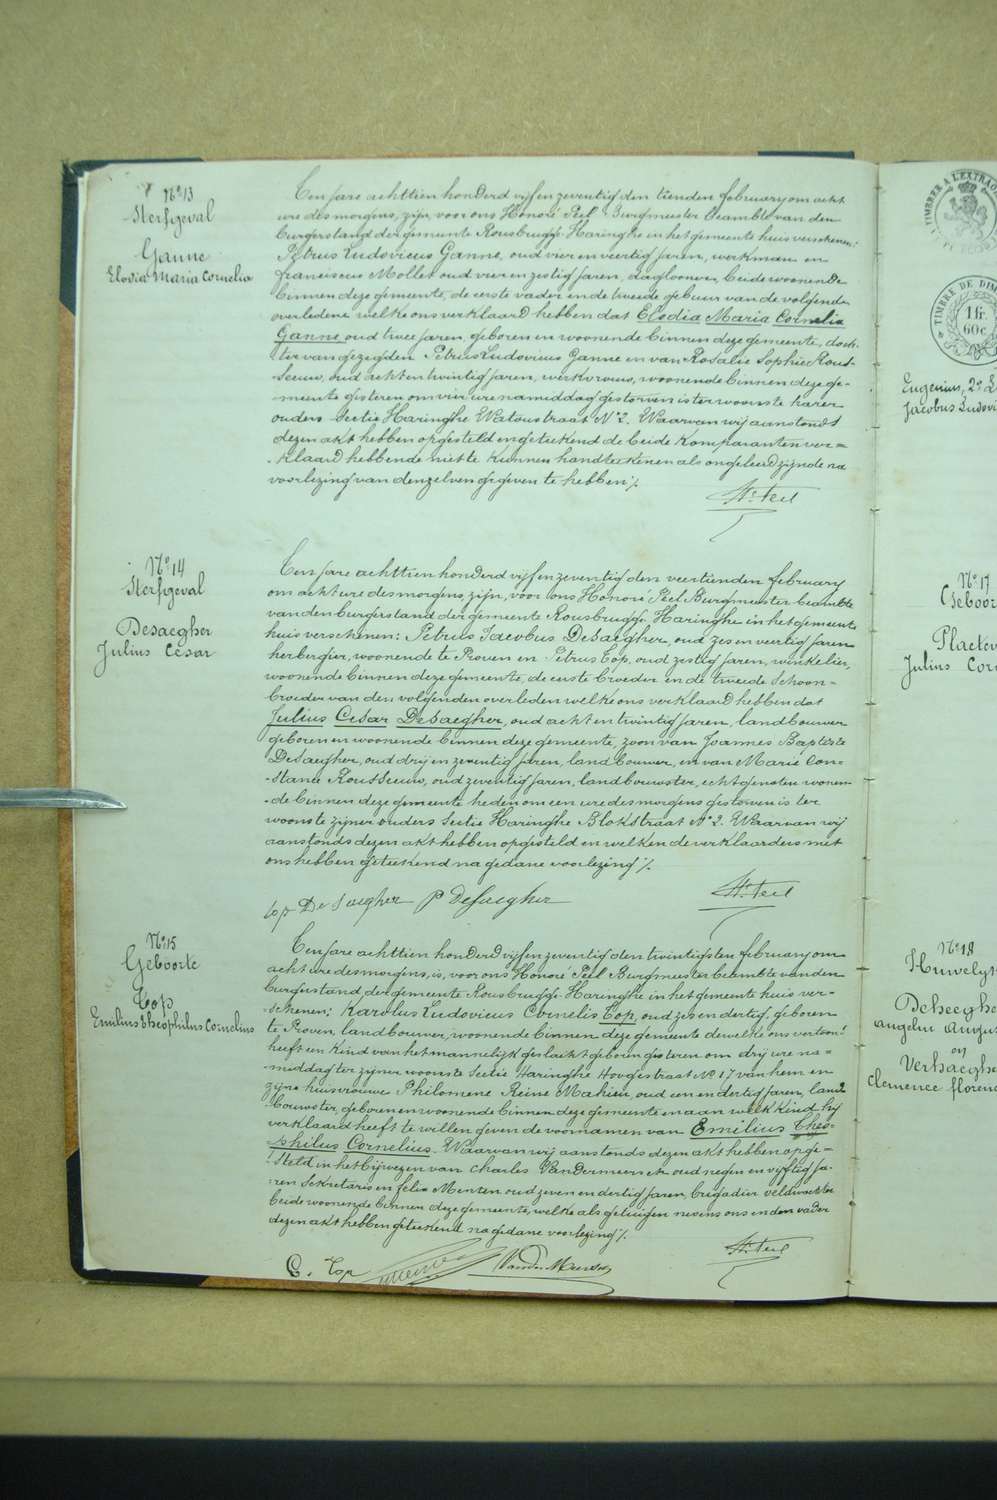 N° 13
Sterfgeval
Ganne
Elodia Maria Cornelia
Een jare achttien honderd vijf en zeventig den tienden february om acht
ure des morgens, zijn, voor ons Honoré Peel Burgmeester beambte van den
burgerstand der gemeente Rousbrugge Haringhe in het gemeente huis verschenen:
Petrus Ludovicus Ganne, oud vier en veertig jaren, werkman en
franciscus Mollet oud vier en zestig jaren, daglooner, beide woonende
binnen deze gemeente, de eerste vader en de tweede gebuur van de volgende
overledene welke ons verklaard hebben dat Elodia Maria Cornelia
Ganne, oud twee jaren, geboren en woonende binnen deze gemeente, doch-
ter van gezegden Petrus Ludovicus Ganne en van Rosalie Sophie Rous-
seeuw, oud acht en twintig jaren, werkvrouw, woonende binnen deze ge-
meente gisteren om vier ure namiddag gestorven is ter woonste harer
ouders Sectie Haringhe Watoustraat N° 2. Waarvan wij aanstonds
dezen akt hebben opgesteld en geteekend de beide komparanten ver=
-klaard hebbende niet te kunnen handteekenen als ongeleerd zijnde na
voorlezing van denzelven gegeven te hebben ./.
Hré Peel
N° 14
Sterfgeval
Desaegher
Julius Cesar
Een jare achttien honderd vijf en zeventig den veertienden february
om acht ure des morgens, zijn, voor ons Honoré Peel Burgmeester beambte
van den burgerstand der gemeente Rousbrugge Haringhe in het gemeente
huis verschenen: Petrus Jacobus DeSaegher, oud zes en veertig jaren
herbergier, woonende te Proven en Petrus Top, oud zestig jaren, winkelier,
woonende binnen deze gemeente, de eerste broeder en de tweede Schoon-
broeder van den volgenden overleden welke ons verklaard hebben dat
Julius Cesar DeSaegher, oud acht en twintig jaren, landbouwer
geboren en woonende binnen deze gemeente, zoon van Joannes Baptiste
DeSaegher, oud drij en zeventig jaren, landbouwer, en van Marie Con-
-stance Rousseeuw, oud zeventig jaren, landbouwster, echtgenoten woonen-
-de binnen deze gemeente heden om een ure des morgens gestorven is ter
woonste zijner ouders Sectie Haringhe Blokstraat N° 2. Waarvan wij
aanstonds dezen akt hebben opgesteld en welken de verklaarders met
ons hebben geteekend na gedane voorlezing ./.
top DeSaegher P DeSaegher
Hré Peel
N° 15
Geboorte
Top
Emilius Theophilus Cornelius
Een jare achttien honderd vijf en zeventig den twintigsten february om
acht ure des morgens, is, voor ons Honoré Peel Burgmeester beambte van den
burgerstand der gemeente Rousbrugge Haringhe in het gemeente huis ver-
schenen: Karolus Ludovicus Cornelis Top, oud zes en dertig, geboren
te Proven, landbouwer, woonende binnen deze gemeente dewelke ons vertoond
heeft een kind van het mannelijk geslacht geboren gisteren om drij ure na=
-middag ter zijner woonste Sectie Haringhe Hoogestraat N° 17 van hem en
zijne huisvrouwe Philomene Reine Mahieu, oud een en dertig jaren, land=
bouwster, geboren en woonende binnen deze gemeente en aan welk kind hij
verklaard heeft te willen geven de voornamen van Emilius Theo=
=philus Cornelius. Waarvan wij aanstonds dezen akt hebben opge=
steld in het bijwezen van Charles Vandermeersch oud negen en vijftig ja-
-ren Sekretaris en felix Menten oud zeven en dertig jaren, brigadier veldwachter
beide woonende binnen deze gemeente, welke als getuigen nevens ons en den vader
dezen akt hebben geteekend na gedane voorlezing ./.
Hré Peel
C. Top
TIMBRE A L'EXTRAO
TIMBRE DE DIM
1 fr.
60 c.
Eugenius, 2° L
Jacobus Ludovi
N° 17
Geboor
Plaetev
Julius Corn
N° 18
Huwelyk
Deheegher
Angelin August
en
Verhaeghe
Clemence florenc